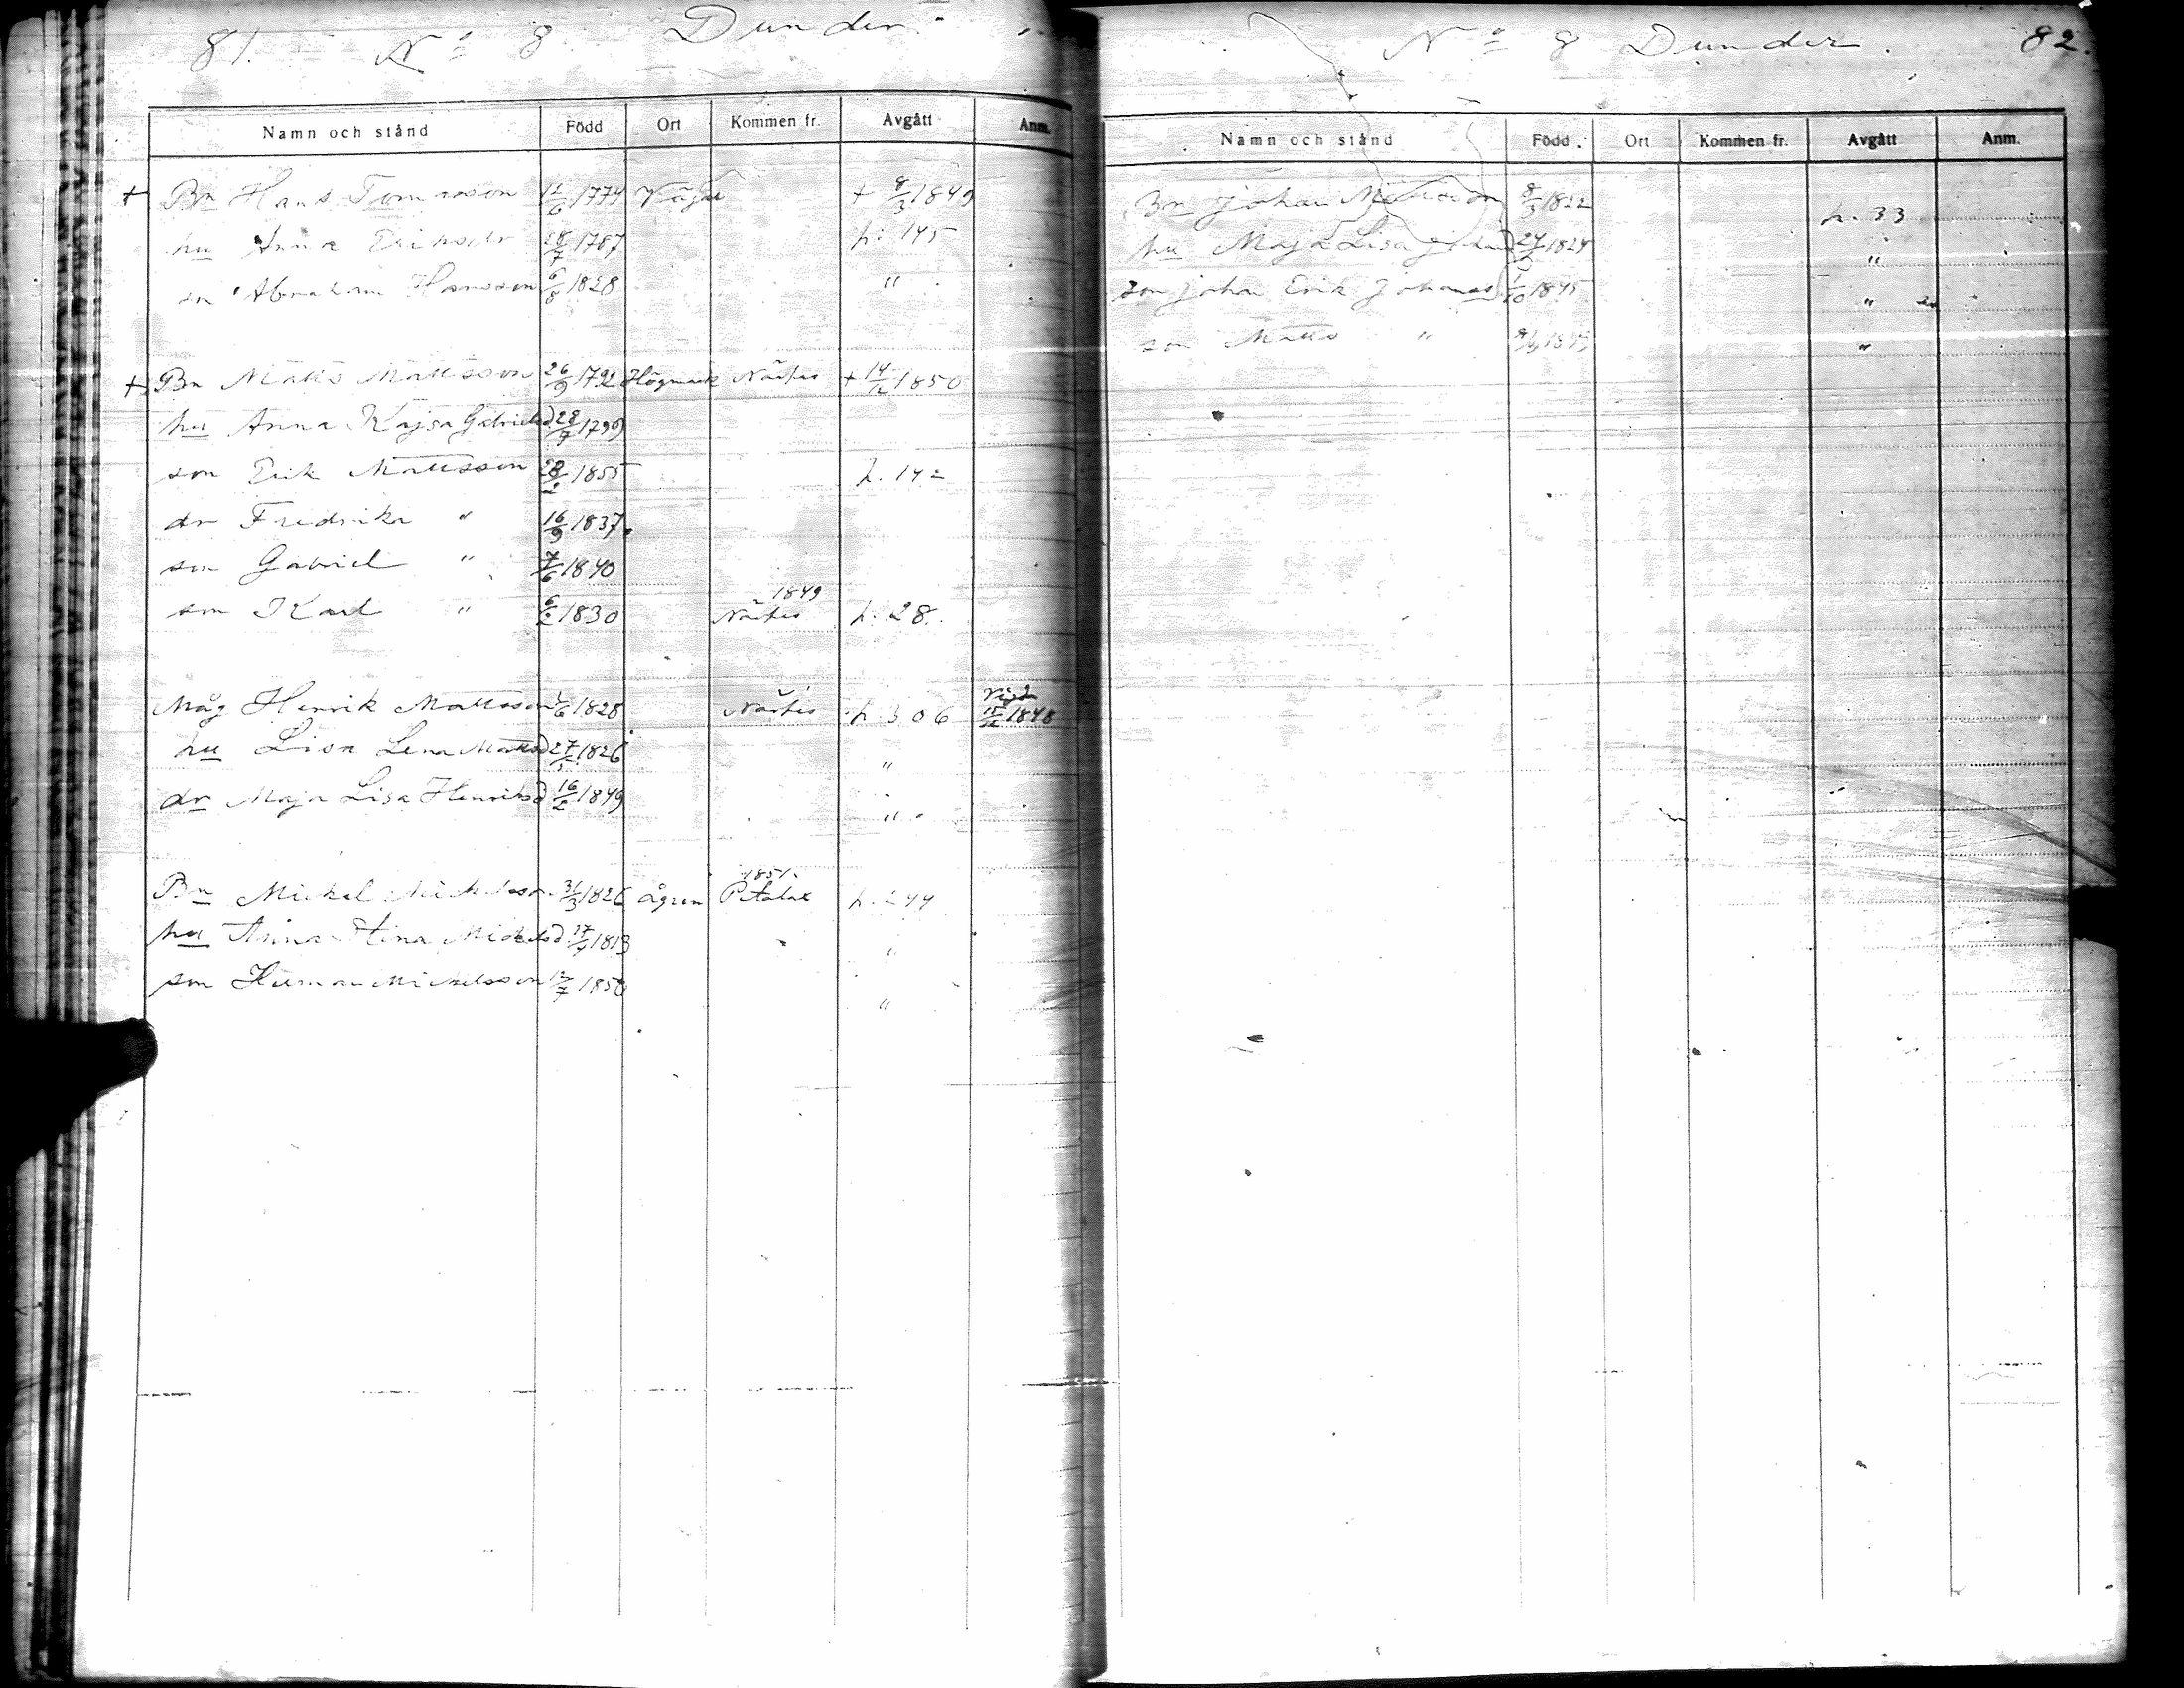 81. No 8 Dunder.
Namn och stånd Född Ort Kommen fr. Avgått Anm.
+ Bn Hans Tomasson 12/6 1774 + 8/3 1849
hu Anna Eriksdr 28/7 1787 p. 145
son Abraham Hansson 6/8 1828 "
+ Bn Matts Mattsson 26/9 1792 Högmark Närpes + 14/12 1850
hu Anna Kajsa Gabrielsd 28/7 1799
son Erik Mattsson 28/2 1855 p. 142
dr Fredrika " 16/9 1837
son Gabriel " 7/6 1840
1849
son Karl " 6/2 1830 Närpes p. 28.
Vigda
Måg Henrik Mattsson 1/6 1828 Närpes p. 306 15/12 1848
hu Lisa Lena Mattsd 27/5 1826 "
dr Maja Lisa Henriksd 16/2 1849 "
1851.
Bn Mickel Mickelsson 31/3 1826 Ågren Petalax p. 244
hu Anna Stina Mickelsd 17/9 1813 "
son Herman Mickelsson 12/7 1850 "
No 8 Dunder. 82.
Namn och stånd Född. Ort Kommen fr. Avgått Anm.
Bn Johan Mattsson 8/3 1822 p. 33
hu Maja Lisa 24/2 1824 "
son Johan Erik Johanss 1/10 1845 "
son Matts " 1849 "